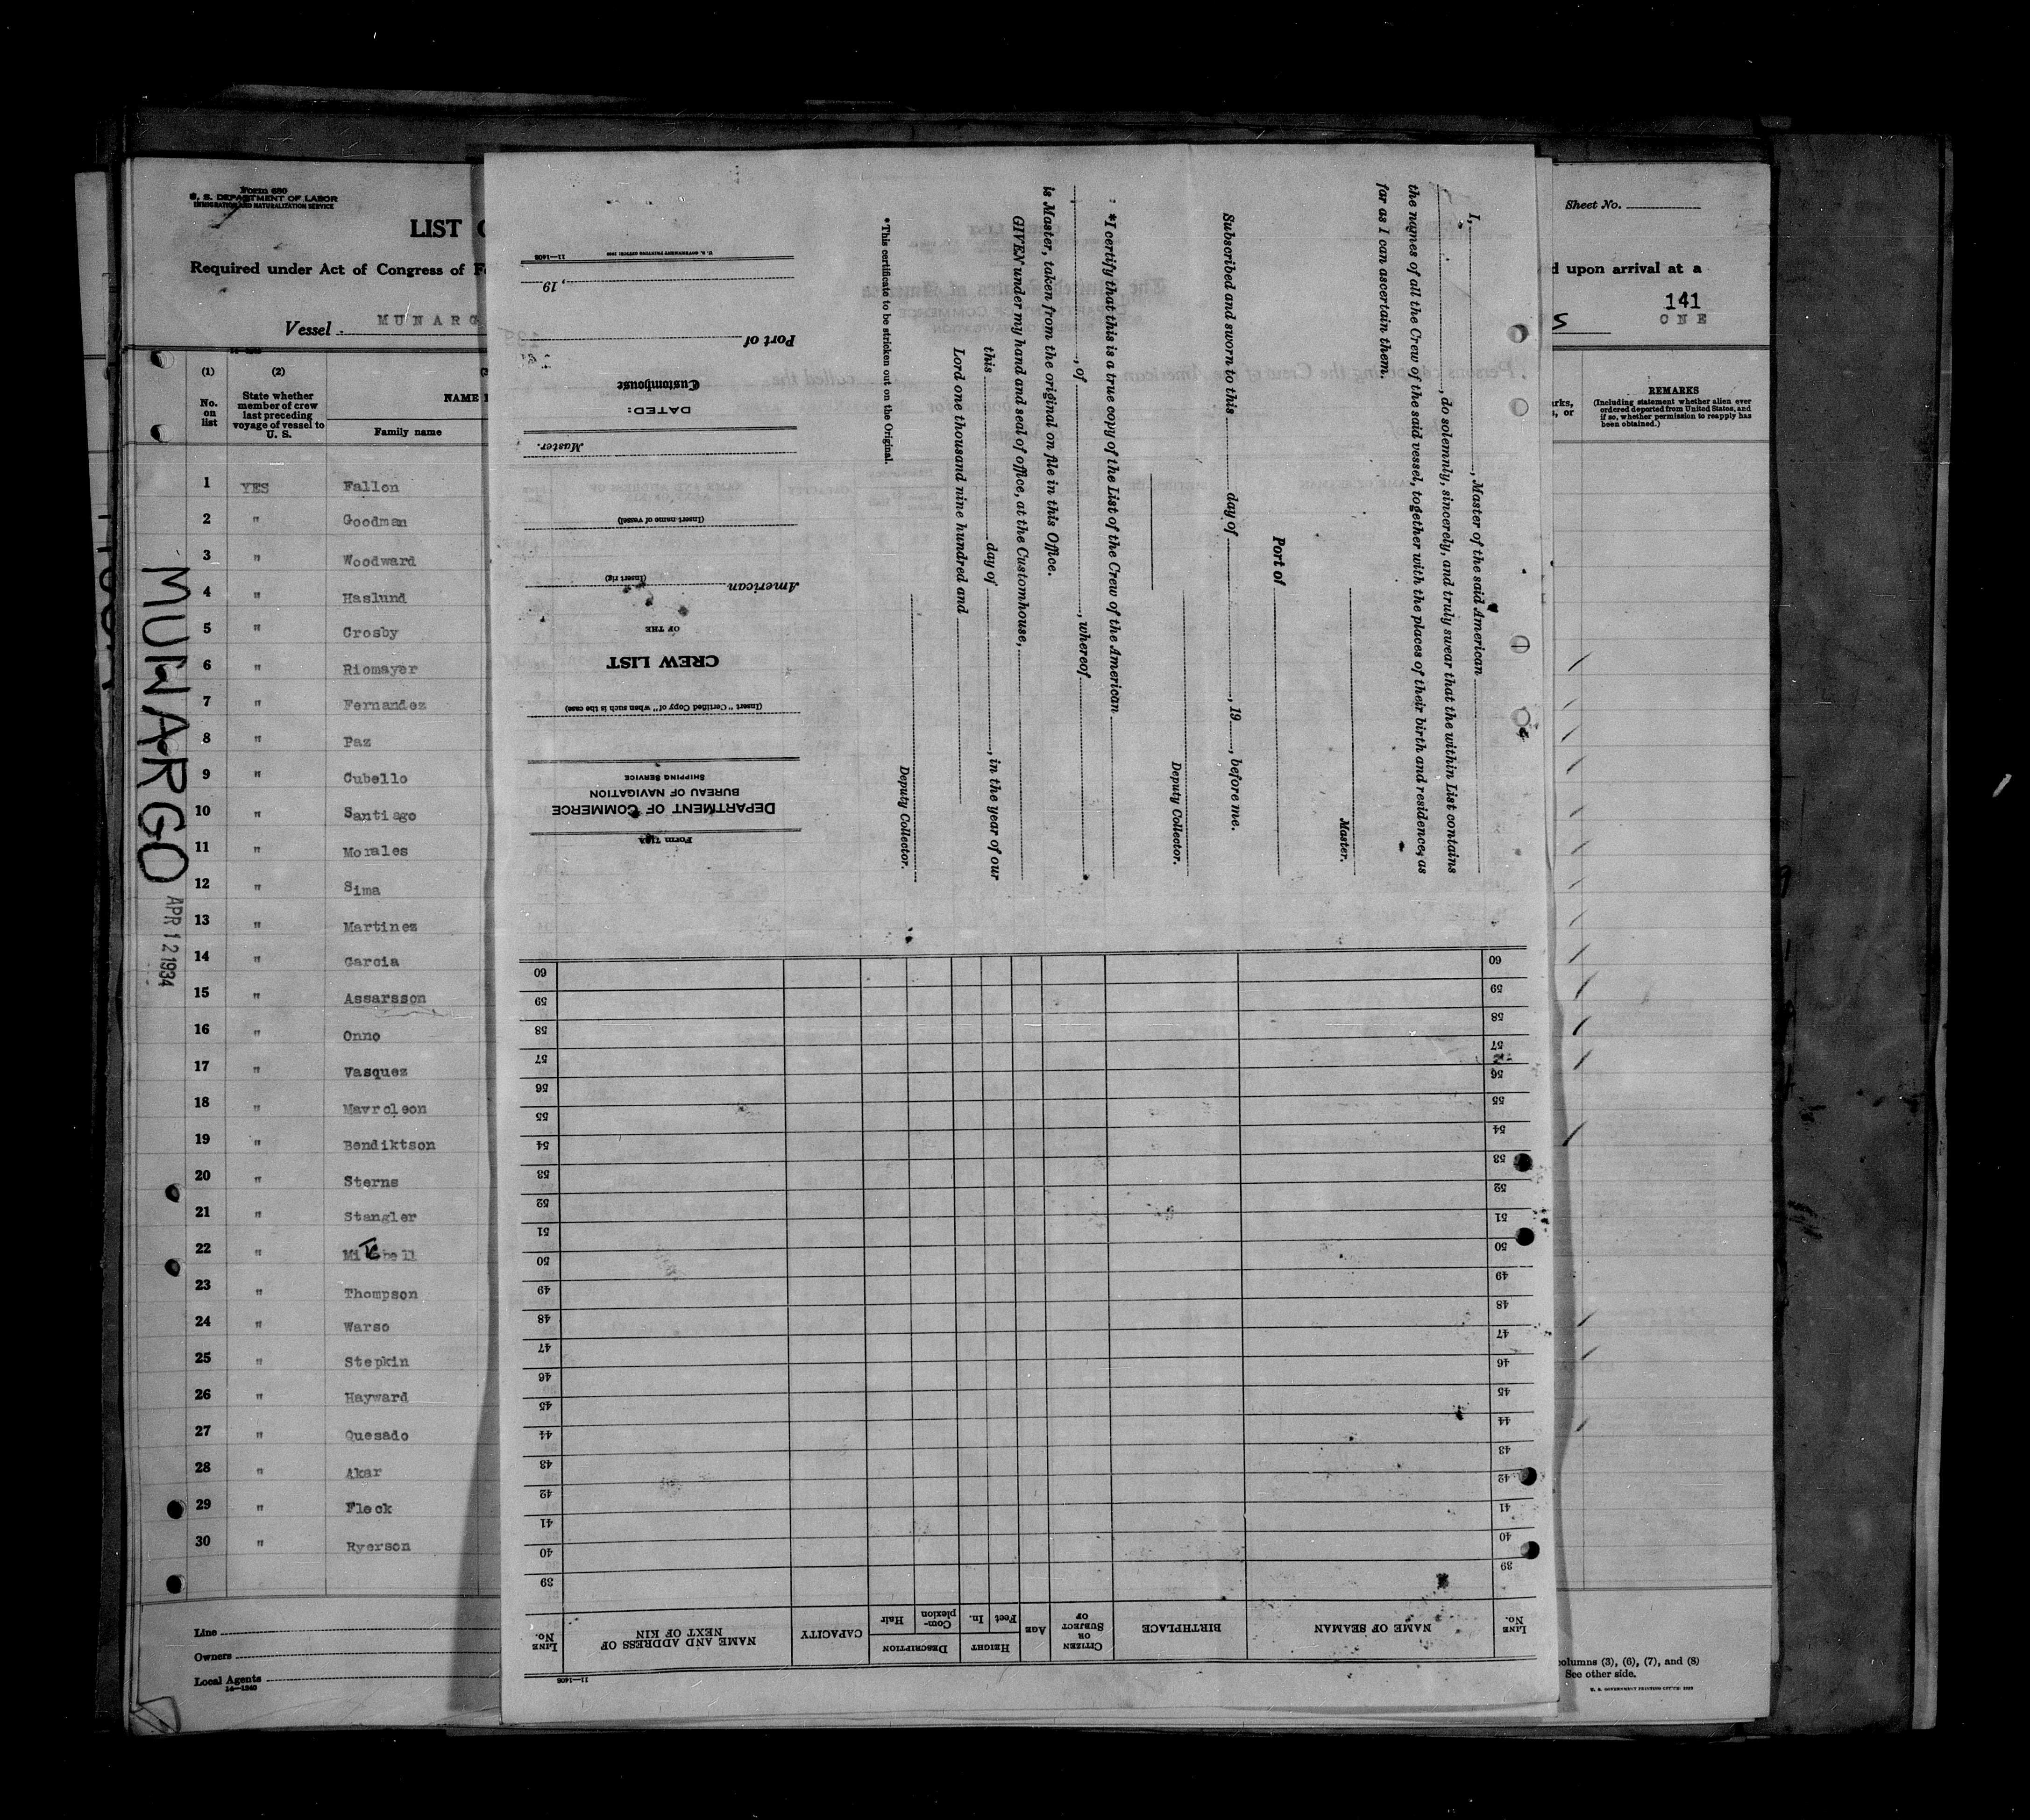 Form 680
U. S. DEPARTMENT OF LABOR
IMMIGRATION AND NATURALIZATION SERVICE
LIST
Required under Act of Congress of
Vessel MUNARG
(1)
No.
on
list
(2)
State whether
member of crew
last preceding
voyage of vessel to
U. S.
NAME
Family name
1 YES Fallon
2 " Goodman
3 " Woodward
4 " Haslund
5 " Crosby
6 " Riomayer
7 " Fernandez
8 " Paz
9 " Cubello
10 " Santiago
11 " Morales
12 " Sima
13 " Martinez
14 " Garcia
15 " Assarsson
16 " Onno
17 " Vasquez
18 " Mavroleon
19 " Bendiktson
20 " Sterns
21 " Stangler
22 " Mitchell
23 " Thompson
24 " Warso
25 " Stepkin
26 " Hayward
27 " Quesado
28 " Akar
29 " Fleck
30 " Ryerson
Line
Owners
Local Agents
14—1240
MUNARGO
APR 12 1934
Sheet No.
d upon arrival at a
141
S
ONE
rks,
s, or
REMARKS
(Including statement whether alien ever
ordered deported from United States, and
if so, whether permission to reapply has
been obtained.)
olumns (3), (6), (7), and (8)
See other side.
U. S. GOVERNMENT PRINTING OFFICE
I, , Master of the said American
, do solemnly, sincerely, and truly swear that the within List contains
the names of all the Crew of the said vessel, together with the places of their birth and residence, as
far as I can ascertain them.
Master.
Port of
Subscribed and sworn to this day of , 19 , before me.
Deputy Collector.
*I certify that this is a true copy of the List of the Crew of the American
, of , whereof
is Master, taken from the original on file in this Office.
GIVEN under my hand and seal of office, at the Customhouse,
this day of , in the year of our
Lord one thousand nine hundred and
Deputy Collector.
*This certificate to be stricken out on the Original.
Form 710A
DEPARTMENT OF COMMERCE
BUREAU OF NAVIGATION
SHIPPING SERVICE
(Insert "Certified Copy of" when such is the case)
CREW LIST
OF THE
American
(Insert rig)
(Insert name of vessel)
Master.
DATED:
Customhouse
Port of
, 19
U. S. GOVERNMENT PRINTING OFFICE
11—1406
LINE
No.
NAME OF SEAMAN
BIRTHPLACE
CITIZEN
OR
SUBJECT
OF
AGE
HEIGHT
Feet
In.
DESCRIPTION
Com-
plexion
Hair
CAPACITY
NAME AND ADDRESS OF
NEXT OF KIN
LINE
No.
39 39
40 40
41 41
42 42
43 43
44 44
45 45
46 46
47 47
48 48
49 49
50 50
51 51
52 52
53 53
54 54
55 55
56 56
57 57
58 58
59 59
60 60
11—1406